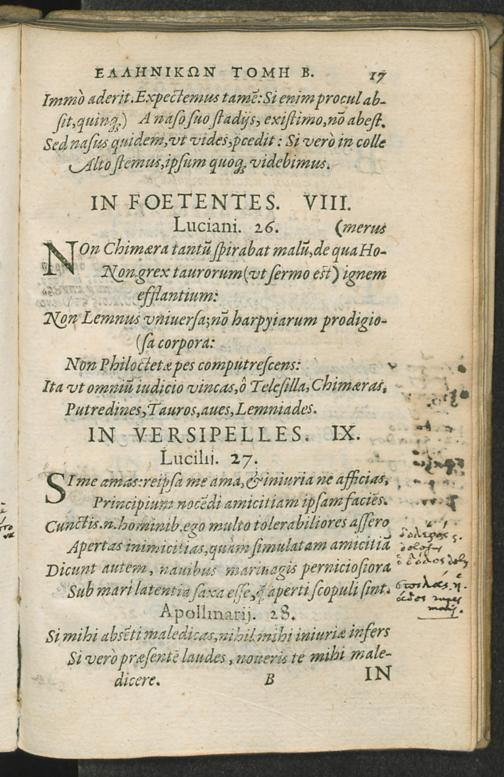 ΕΛΛΗΝΙΚΩΝ ΤΟΜΗ Β. 17
Immò aderit. Expectemus tamẽ: Si enim procul ab-
sit, quinq;) A naso suo stadijs, existimo, nõ abest.
Sed nasus quidem, vt vides, pcedit: Si verò in colle
Alto stemus, ipsum quoq; videbimus.
IN FOETENTES. VIII.
Luciani. 26. (merus
NOn Chimæra tantũ spirabat malũ, de qua Ho-
Non grex taurorum (vt sermo est) ignem
efflantium:
Non Lemnus vniuersa; nõ harpyiarum prodigio-
(sa corpora:
Non Philoctetæ pes computrescens:
Ita vt omniũ iudicio vincas, ô Telesilla, Chimæras,
Putredines, Tauros, aues, Lemniades.
IN VERSIPELLES. IX.
Lucilii. 27.
SI me amas: reipsa me ama, & iniuria ne afficias,
Principium nocẽdi amicitiam ipsam faciẽs.
Cunctis.n.hominib. ego multo tolerabiliores assero
Apertas inimicitias, quàm simulatam amicitiã
Dicunt autem, nauibus marinagis perniciosiora
Sub mari latentia saxa esse, q̃ aperti scopuli sint.
Apollinarij. 28.
Si mihi absẽti maledicas, nihil mihi iniuriæ infers
Si verò præsentẽ laudes, noueris te mihi male-
dicere. B IN